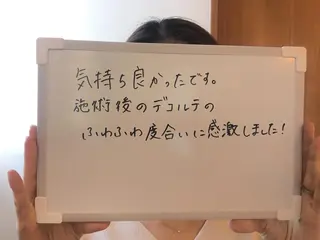 気持ち良かったです。
施術後のデコルテの
ふわふわ度合いに感激しました!